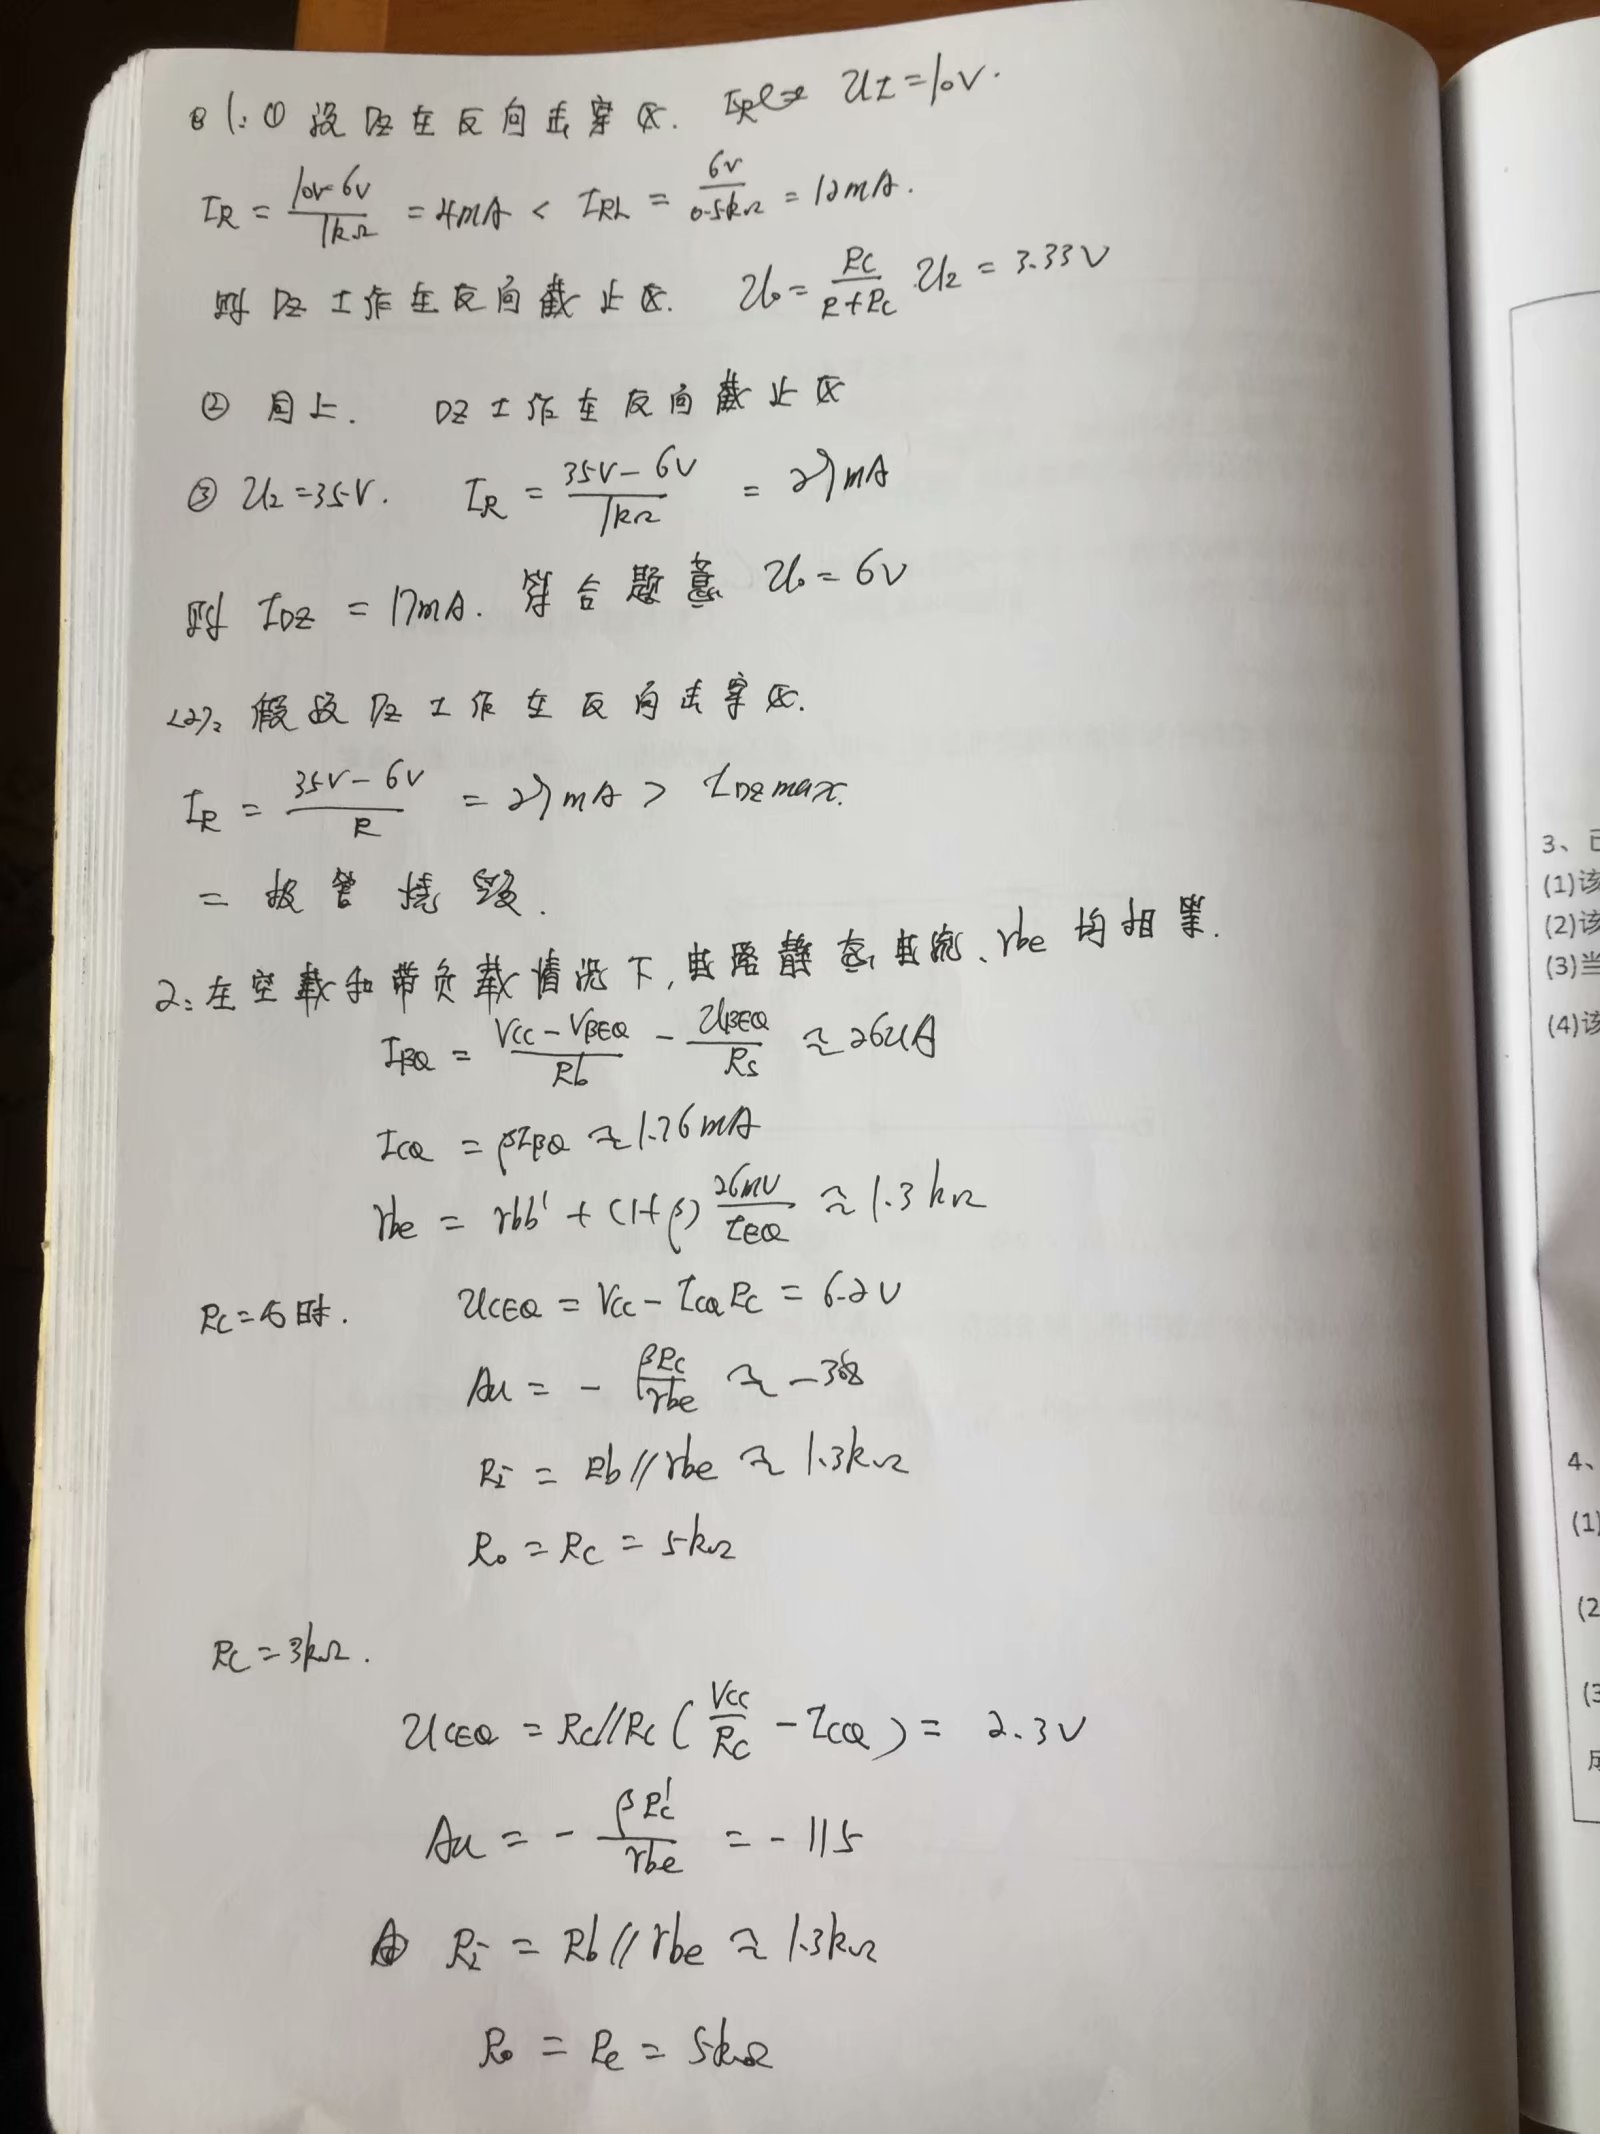 1: ① 设 DZ 在反向击穿区. UI=10V.
IR = \frac{10V-6V}{1kΩ} = 4mA < IRL = \frac{6V}{0.5kΩ} = 12mA.
则 DZ 工作在反向截止区. U0 = \frac{RL}{R+RL} U2 = 3.33V
② 同上. DZ 工作在反向截止区
③ U2=35V. IR = \frac{35V-6V}{1kΩ} = 29mA
则 IDZ = 17mA. 符合题意 U0 = 6V
<2>: 假设 DZ 工作在反向击穿区.
IR = \frac{35V-6V}{R} = 29mA > IDZmax.
二极管烧毁.
2: 在空载和带负载情况下, 电路静态电流、rbe 均相等.
IBQ = \frac{VCC-VBEQ}{Rb} - \frac{UBEQ}{RS} ≈ 26uA
ICQ = βIBQ ≈ 1.76mA
rbe = rbb' + (1+β) \frac{26mV}{IEQ} ≈ 1.3kΩ
RL=∞时. UCEQ = VCC - ICQRC = 6.2V
Au = - \frac{βRC}{rbe} ≈ -308
Ri = Rb//rbe ≈ 1.3kΩ
Ro = RC = 5kΩ
RL=3kΩ.
UCEQ = RC//RL ( \frac{VCC}{RC} - ICQ ) = 2.3V
Au = - \frac{βRL'}{rbe} = -115
Ri = Rb//rbe ≈ 1.3kΩ
Ro = Rc = 5kΩ
3、
(1)该
(2)该
(3)当
(4)该
4、
(1)
(2
(3